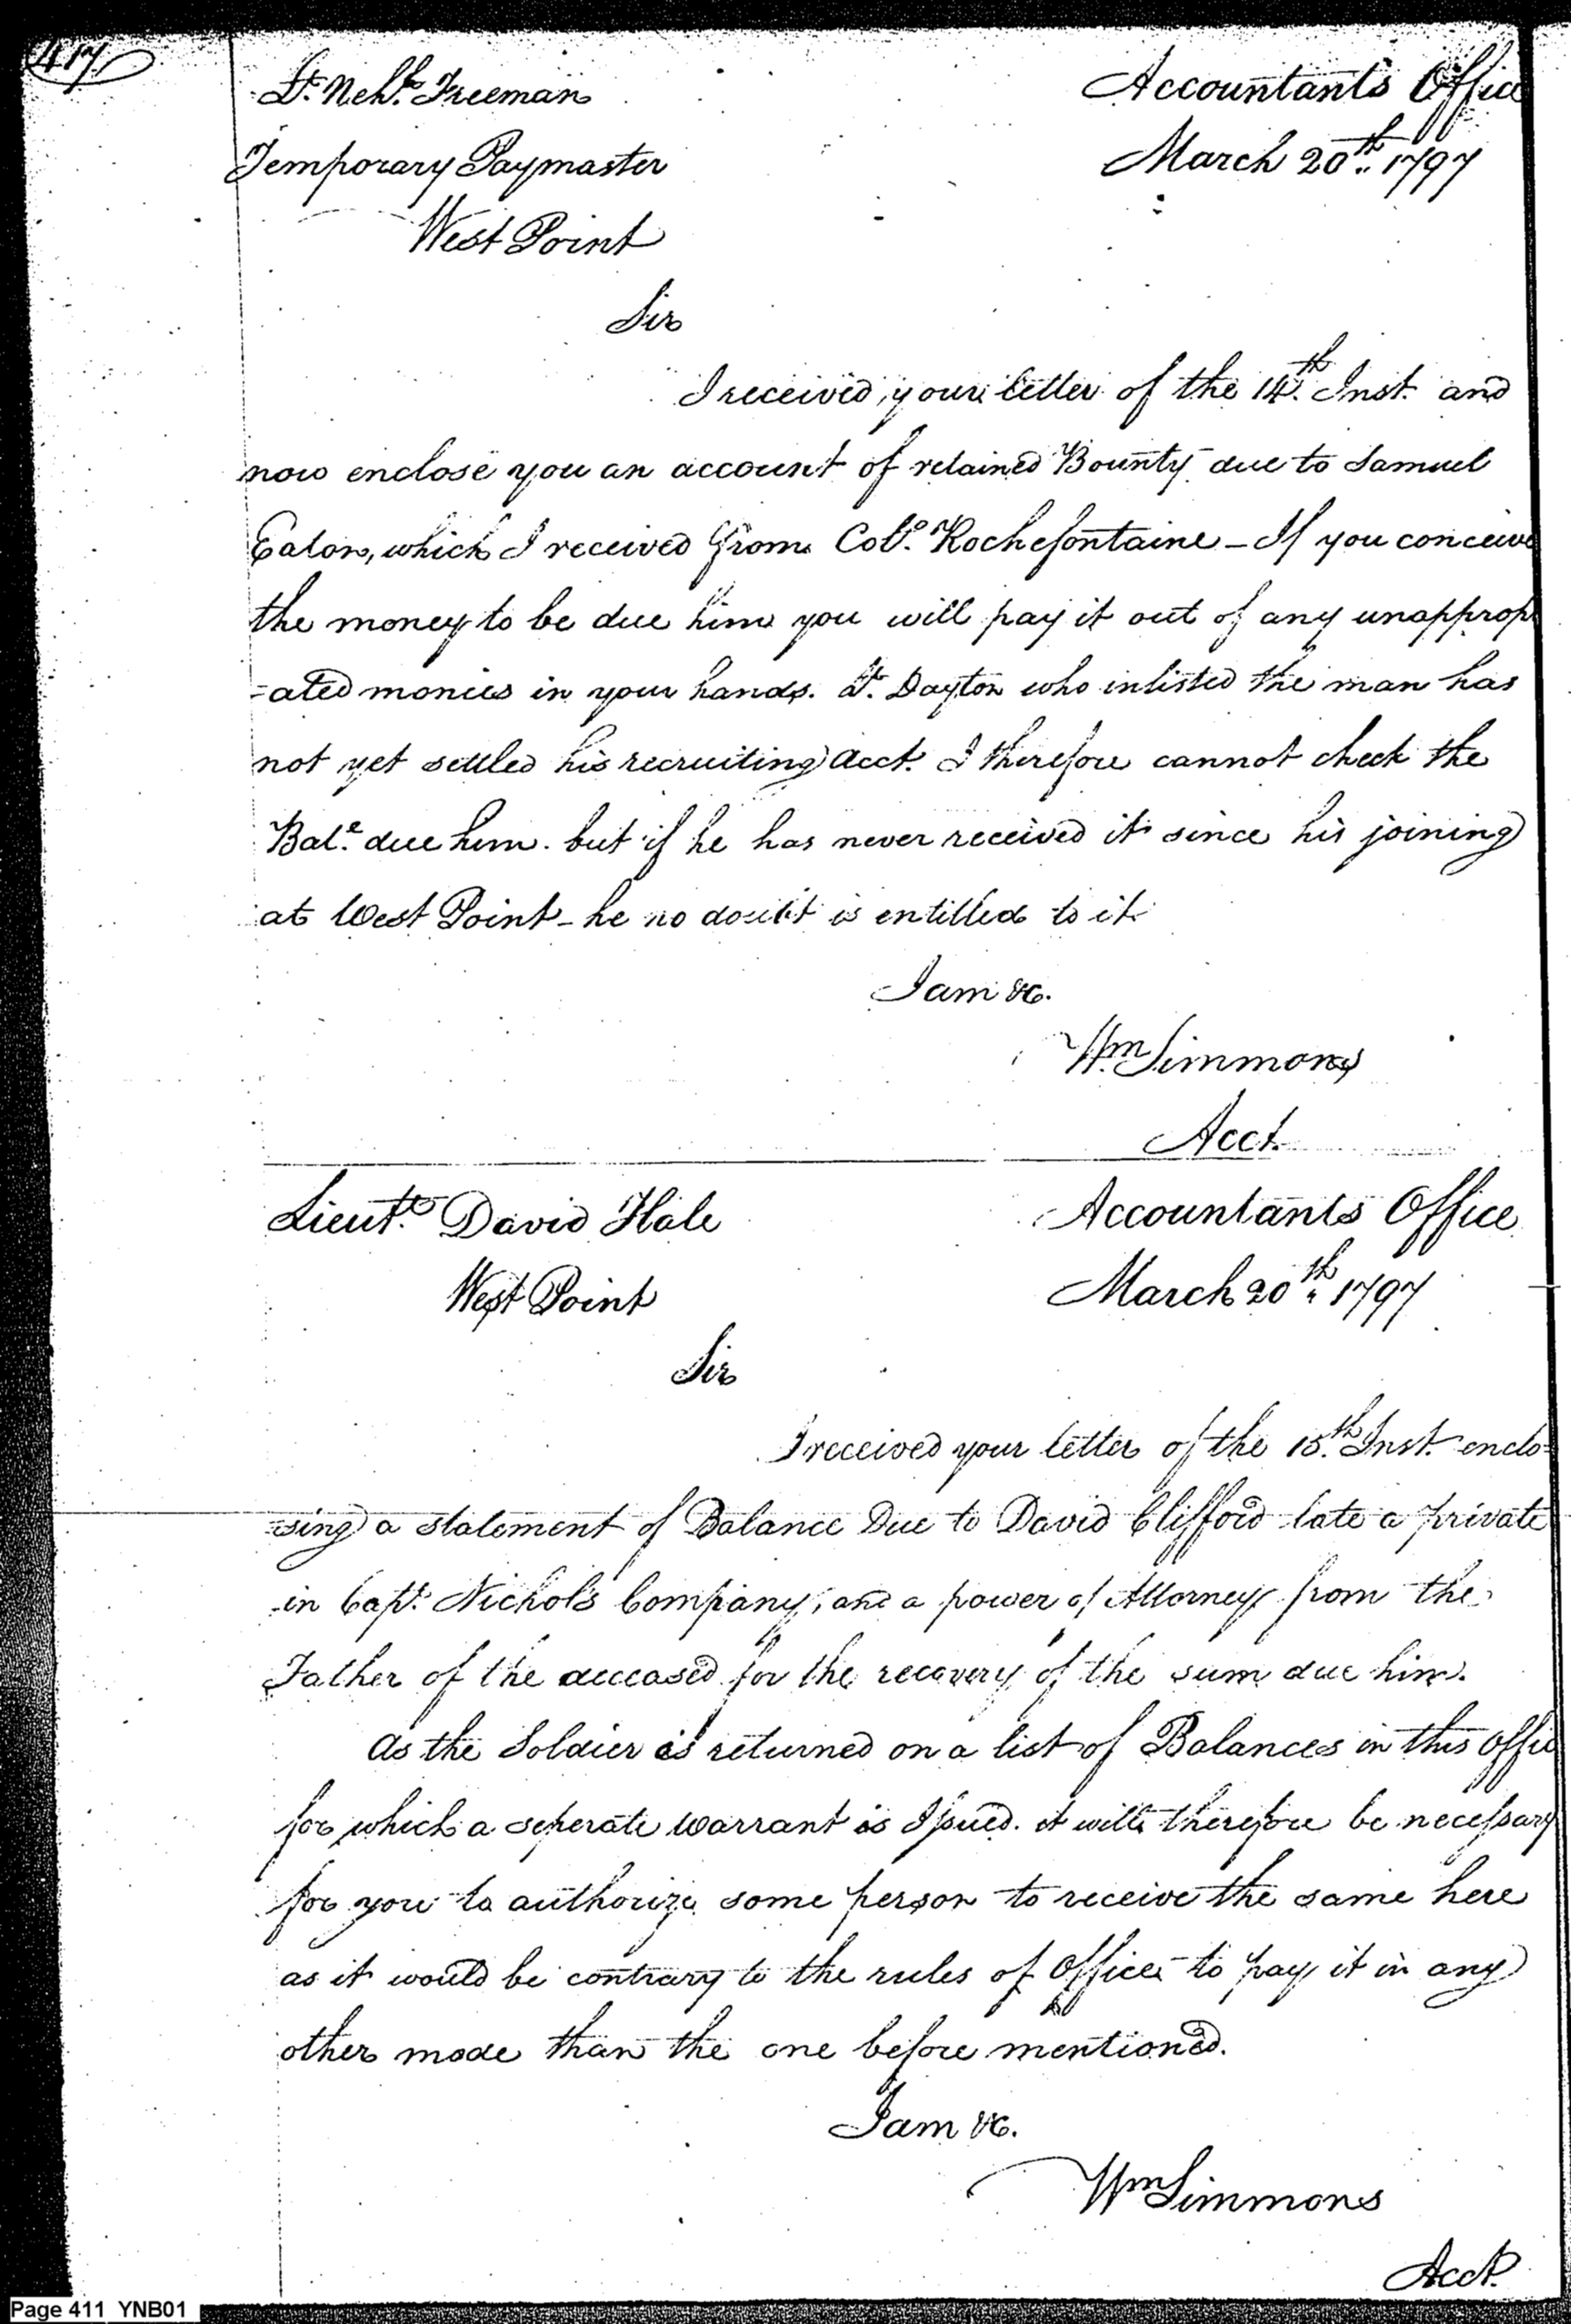 417
Lt. Nehh. Freeman
Temporary Paymaster
West Point
Accountants Office
March 20th. 1797
Sir
I received your letter of the 14th. Inst. and
now enclose you an account of retained Bounty due to Samuel
Eaton, which I received from Colo. Rochefontaine - If you conceive
the money to be due him you will pay it out of any unapprop
-ated monies in your hands. Lt. Dayton who inlisted the man has
not yet settled his recruiting acct. I therefore cannot check the
Bale. due him. but if he has never received it since his joining
at West Point - he no doubt is entitled to it
I am &c.
Wm. Simmons
Acct.
Lieutt. David Hale
West Point
Accountants Office
March 20th. 1797
Sir
I received your letter of the 15th. Inst. enclo-
sing a statement of Balance Due to David Clifford late a private
in Capt. Nichols Company, and a power of Attorney from the
Father of the deceased for the recovery of the sum due him.
As the Soldier is returned on a list of Balances in this Office
for which a seperate warrant is Issued. it will therefore be necessary
for you to authorize some person to receive the same here
as it would be contrary to the rules of Office to pay it in any
other mode than the one before mentioned.
I am &c.
Wm Simmons
Acct.
Page 411 YNB01